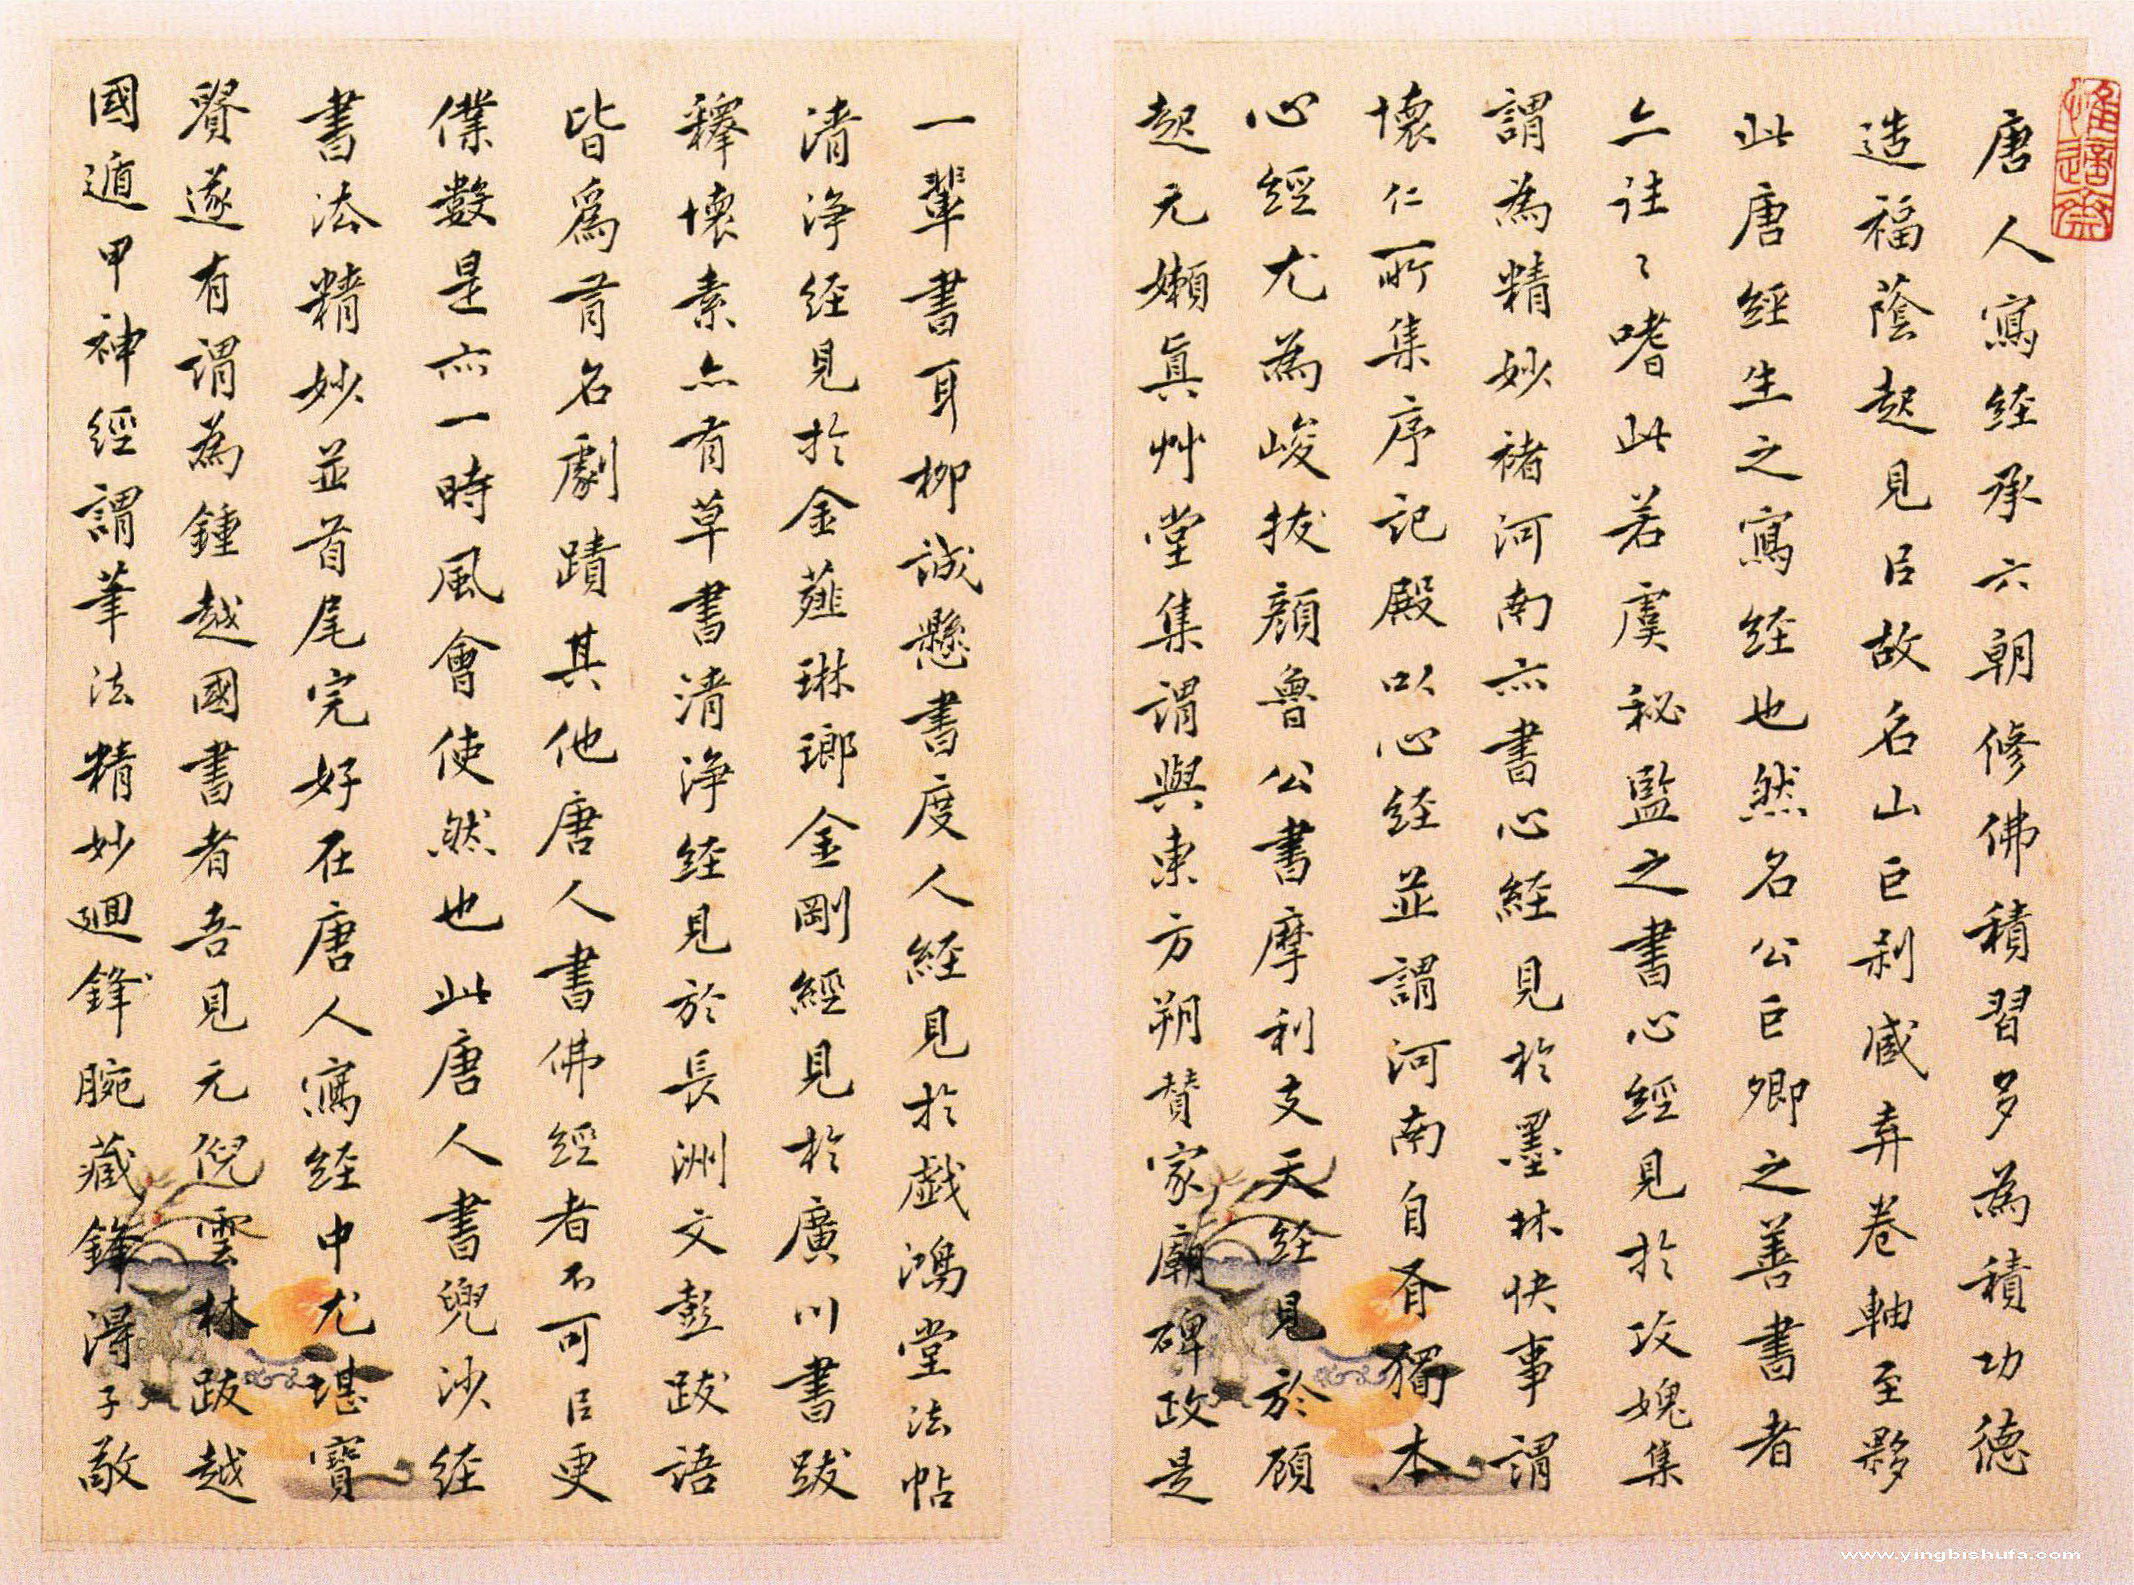 唐人寫経承六朝修佛積習多為積功德
造福蔭起見㠯故名山巨刹咸弆卷軸至夥
此唐經生之寫経也然名公巨卿之善書者
亦往〻嗜此若虞秘監之書心經見於攻媿集
謂為精妙褚河南亦書心經見於墨林快事謂
懷仁所集序記殿以心経並謂河南自有獨本
心經尤為峻拔顔魯公書摩利支天経見於顧
起元嬾真艸堂集謂與東方朔賛家廟碑政是
一輩書耳柳誠懸書度人経見於戯鴻堂法帖
清浄経見於金薤琳瑯金剛經見於廣川書跋
釋懷素亦有草書清浄経見於長洲文彭跋語
皆為有名劇蹟其他唐人書佛經者不可㠯更
僕數是亦一時風會使然也此唐人書兜沙経
書法精妙並首尾完好在唐人寫経中尤堪寶
贤遂有謂為鍾越國書者吾見元倪雲林跋越
國遁甲神經謂筆法精妙廻鋒腕藏鋒得子敬
www.yingbishufa.com